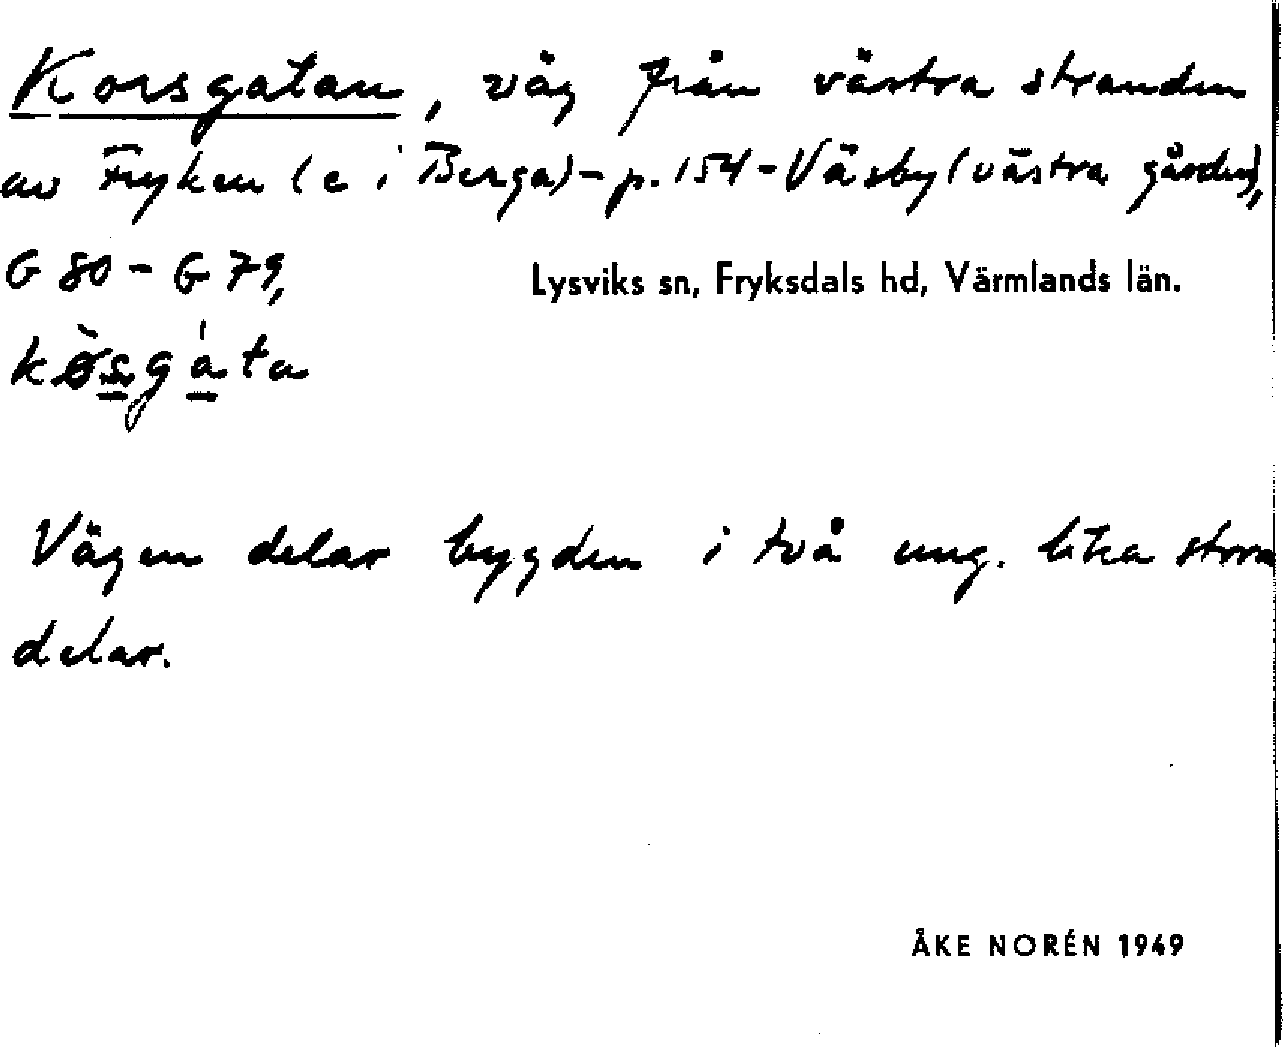 Korsgatan, väg från västra stranden
av Fryken (c i Berga) - p. 154 - Väsby (västra gården),
G 80 - G 79,
Lysviks sn, Fryksdals hd, Värmlands län.
kø̀sgáta
Vägen delar bygden i två ung. lika stora
delar.
ÅKE NORÉN 1949